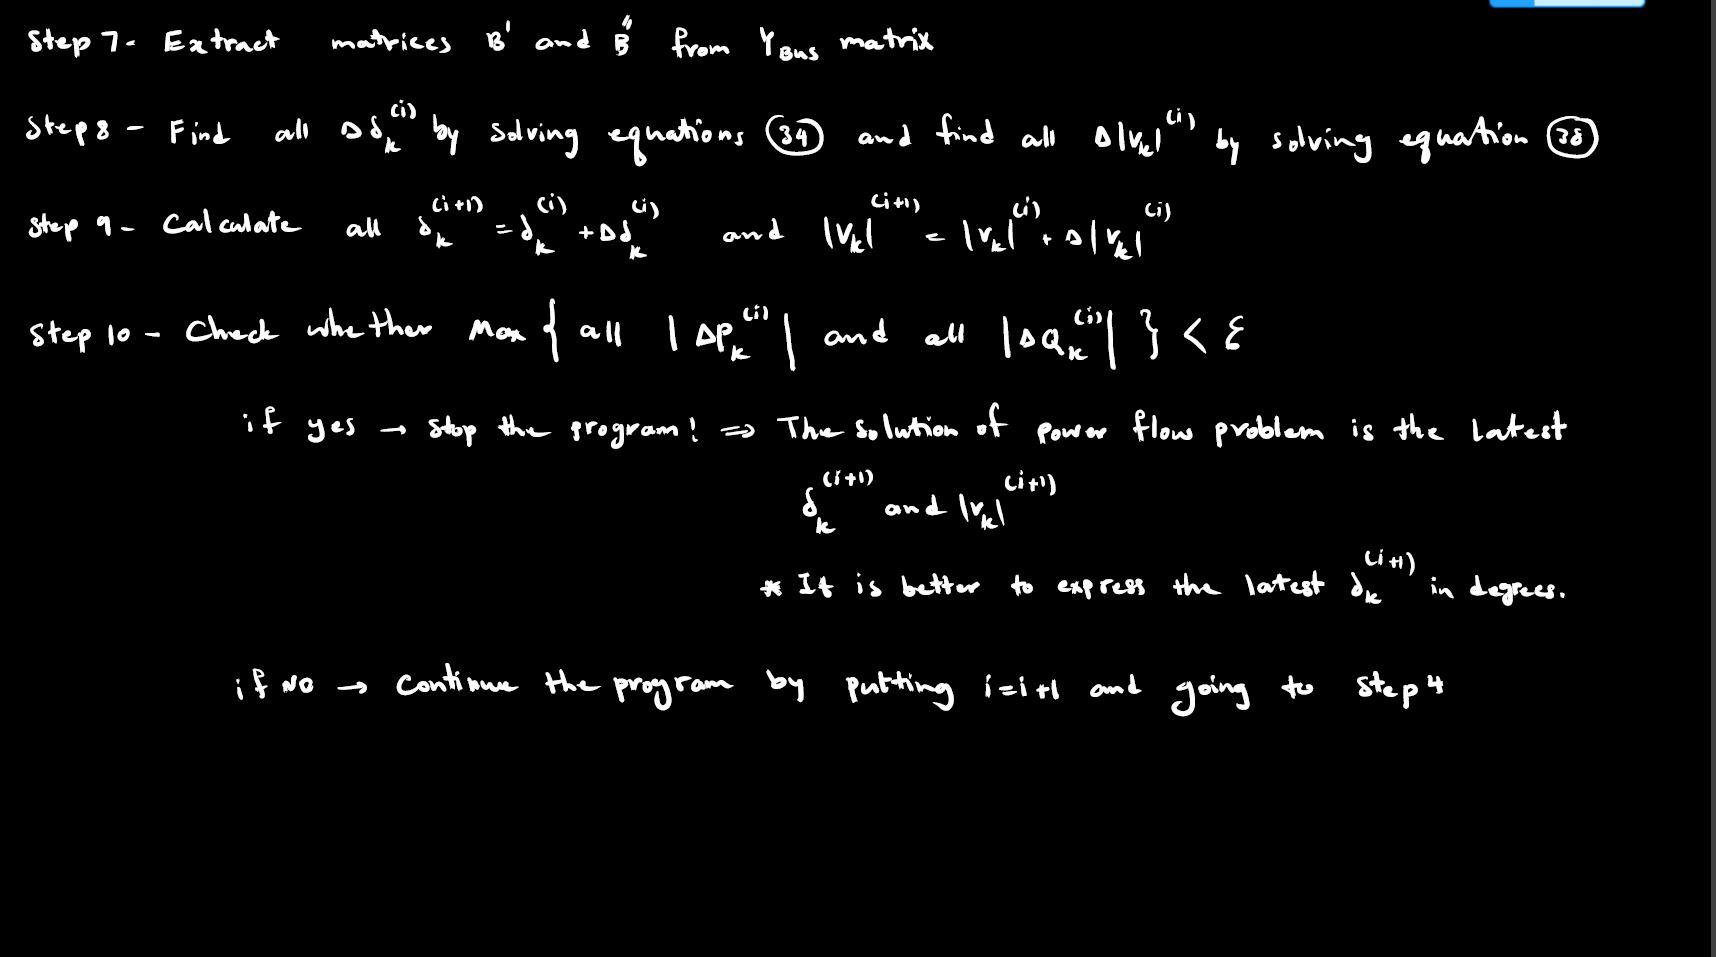 Step 7- Extract matrices B' and B'' from Y_Bus matrix
Step 8 - Find all Δδ_k^(i) by solving equations (34) and find all Δ|V_k|^(i) by solving equation (38)
Step 9 - Calculate all δ_k^(i+1) = δ_k^(i) + Δδ_k^(i) and |V_k|^(i+1) = |V_k|^(i) + Δ|V_k|^(i)
Step 10 - Check whether Max { all |ΔP_k^(i)| and all |ΔQ_k^(i)| } < ε
if yes → stop the program! ⇒ The solution of power flow problem is the latest
δ_k^(i+1) and |V_k|^(i+1)
* It is better to express the latest δ_k^(i+1) in degrees.
if No → continue the program by putting i=i+1 and going to step 4